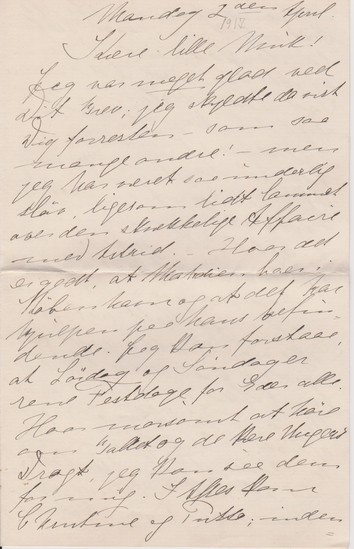 Mandag 2den April.
1912
Kære lille Mink!
Jeg var meget glad ved
Dit Brev; jeg skyldte da vist
Dig forresten – som saa
mange andre! – men
jeg har været saa inderlig
sløv, ligesom lidt lammet
over den skrækkelige Affaire
med Astrid. – Hvor det
er godt, at Thakdien boer i
København og at det har
hjulpen paa hans befin-
dende. Jeg kan forstaae,
at Lørdag og Søndag er
rene Festdage for Eder alle.
Hvor morsomt at høre
om Ballet og de flere Ungers
Dragt, jeg kan see dem
for mig. I Aftes kom
Christine og Putte; inden